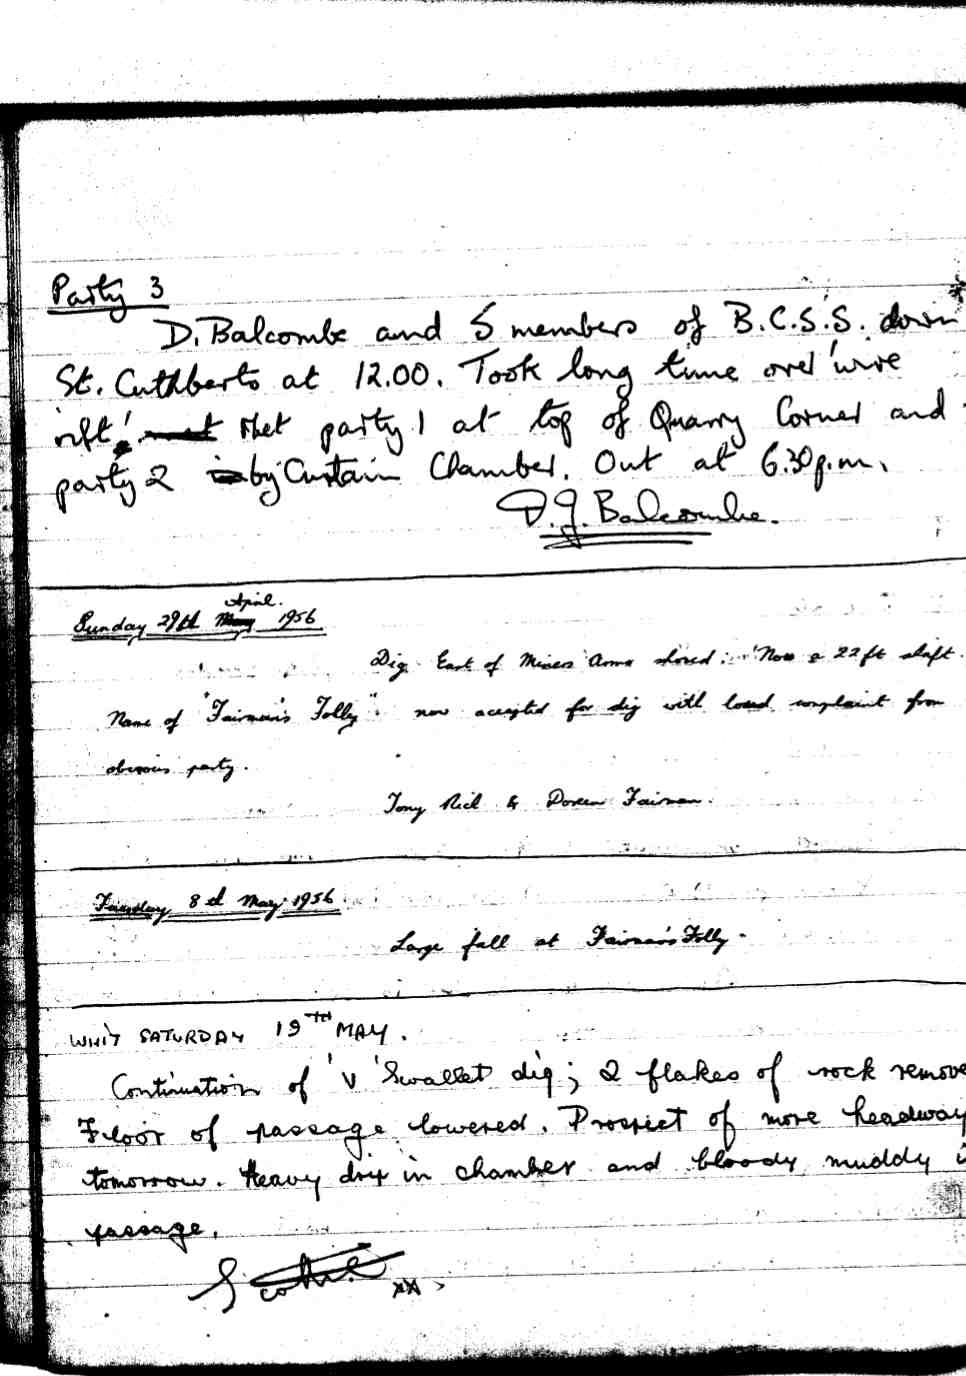 Party 3
D. Balcombe and 5 members of B.C.S.S. down
St. Cuthberts at 12.00. Took long time over 'wire
rift'. Met party 1 at top of Quarry Corner and
party 2 by Curtain Chamber. Out at 6.30p.m.
D.J. Balcombe.
April.
Sunday 29th May 1956
Dig East of Miners Arms shored. Now a 22ft shaft.
Name of "Fairman's Folly" now accepted for dig with loud complaint from
obvious party.
Tony Rich & Doreen Fairman.
Tuesday 8th May 1956
Large fall at Fairman's Folly.
WHIT SATURDAY 19TH MAY.
Continuation of 'V' Swallet dig; 2 flakes of rock remove
Floor of passage lowered. Prospect of more headway
tomorrow. Heavy drip in chamber and bloody muddy i
passage.